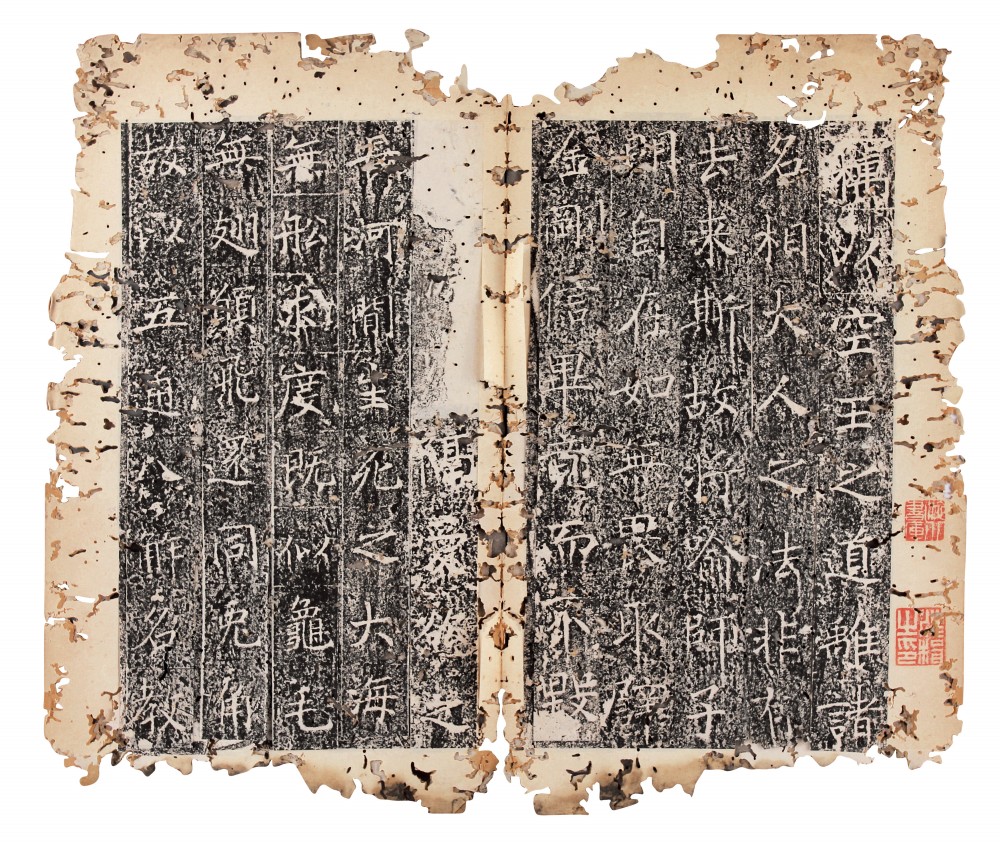 竊以空王之道離諸
名相大人之法非有
去來斯故將喻師子
明自在如無畏取譬
金剛信畢竟而不毀
愛欲之
長河閒生死之大海
無船求度既似龜毛
無翅願飛還同兔角
故以五通八解名教